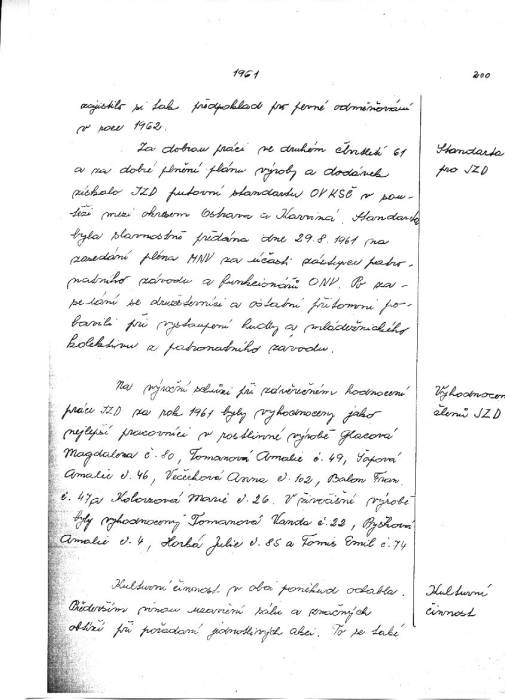 1961
200
zajistilo si tak předpoklad pro pevné odměňování
v roce 1962.
Za dobrou práci ve druhém čtvrtletí 61
a za dobré plnění plánu výroby a dodávek
získalo JZD putovní standardu OV KSČ v sou-
těži mezi okresem Ostrava a Karviná. Standarda
byla slavnostně předána dne 29.8.1961 na
zasedání pléna MNV za účasti zástupců patro-
natního závodu a funkcionářů ONV. Po za-
sedání se družstevníci a ostatní přítomní po-
bavili při vystoupení hudby a mládežnického
kolektivu a patronatního závodu.
Standarta
pro JZD
Na výroční schůzi při závěrečném hodnocení
práce JZD za rok 1961 byly vyhodnoceny jako
nejlepší pracovníci v rostlinné výrobě Glacová
Magdalena č. 80, Tomanová Amalie č. 49, Šapová
Amalie č. 46, Večerková Anna č. 102, Balon Fran.
č. 47a Kolorzová Marie č. 26. V živočišné výrobě
byly vyhodnoceny Tomanová Vanda č. 22,
Amalie č. 4, Horká Julie č. 85 a Tomis Emil č. 74
Vyhodnocen
členů JZD
Kulturní činnost v obci poněkud ochabla.
Především vinou uzavření sálu a značných
obtíží při pořádaní jednotlivých akcí. To se také
Kulturní
činnost